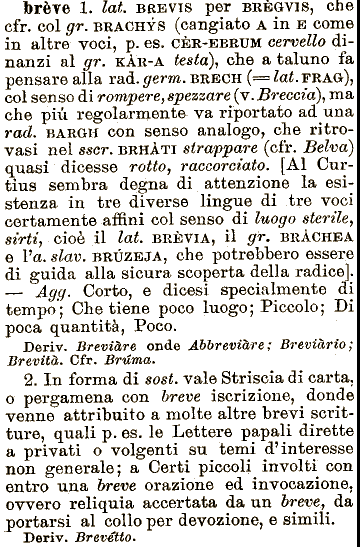 brève 1. lat. BREVIS per BRÈGVIS, che
cfr. col gr. BRACHỲS (cangiato A in E come
in altre voci, p. es. CÈR-EBRUM cervello di-
nanzi al gr. KÀR-A testa), che a taluno fa
pensare alla rad. germ. BRECH (= lat. FRAG),
col senso di rompere, spezzare (v. Breccia), ma
che più regolarmente va riportato ad una
rad. BARGH con senso analogo, che ritro-
vasi nel sscr. BRHÀTI strappare (cfr. Belva)
quasi dicesse rotto, raccorciato. [Al Cur-
tius sembra degna di attenzione la esi-
stenza in tre diverse lingue di tre voci
certamente affini col senso di luogo sterile,
sirti, cioè il lat. BRÈVIA, il gr. BRÀCHEA
e l'a. slav. BRÚZEJA, che potrebbero essere
di guida alla sicura scoperta della radice].
— Agg. Corto, e dicesi specialmente di
tempo; Che tiene poco luogo; Piccolo; Di
poca quantità, Poco.
Deriv. Breviàre onde Abbreviàre; Breviàrio;
Brevità. Cfr. Brúma.
2. In forma di sost. vale Striscia di carta,
o pergamena con breve iscrizione, donde
venne attribuito a molte altre brevi scrit-
ture, quali p. es. le Lettere papali dirette
a privati o volgenti su temi d'interesse
non generale; a Certi piccoli involti con
entro una breve orazione ed invocazione,
ovvero reliquia accertata da un breve, da
portarsi al collo per devozione, e simili.
Deriv. Brevétto.